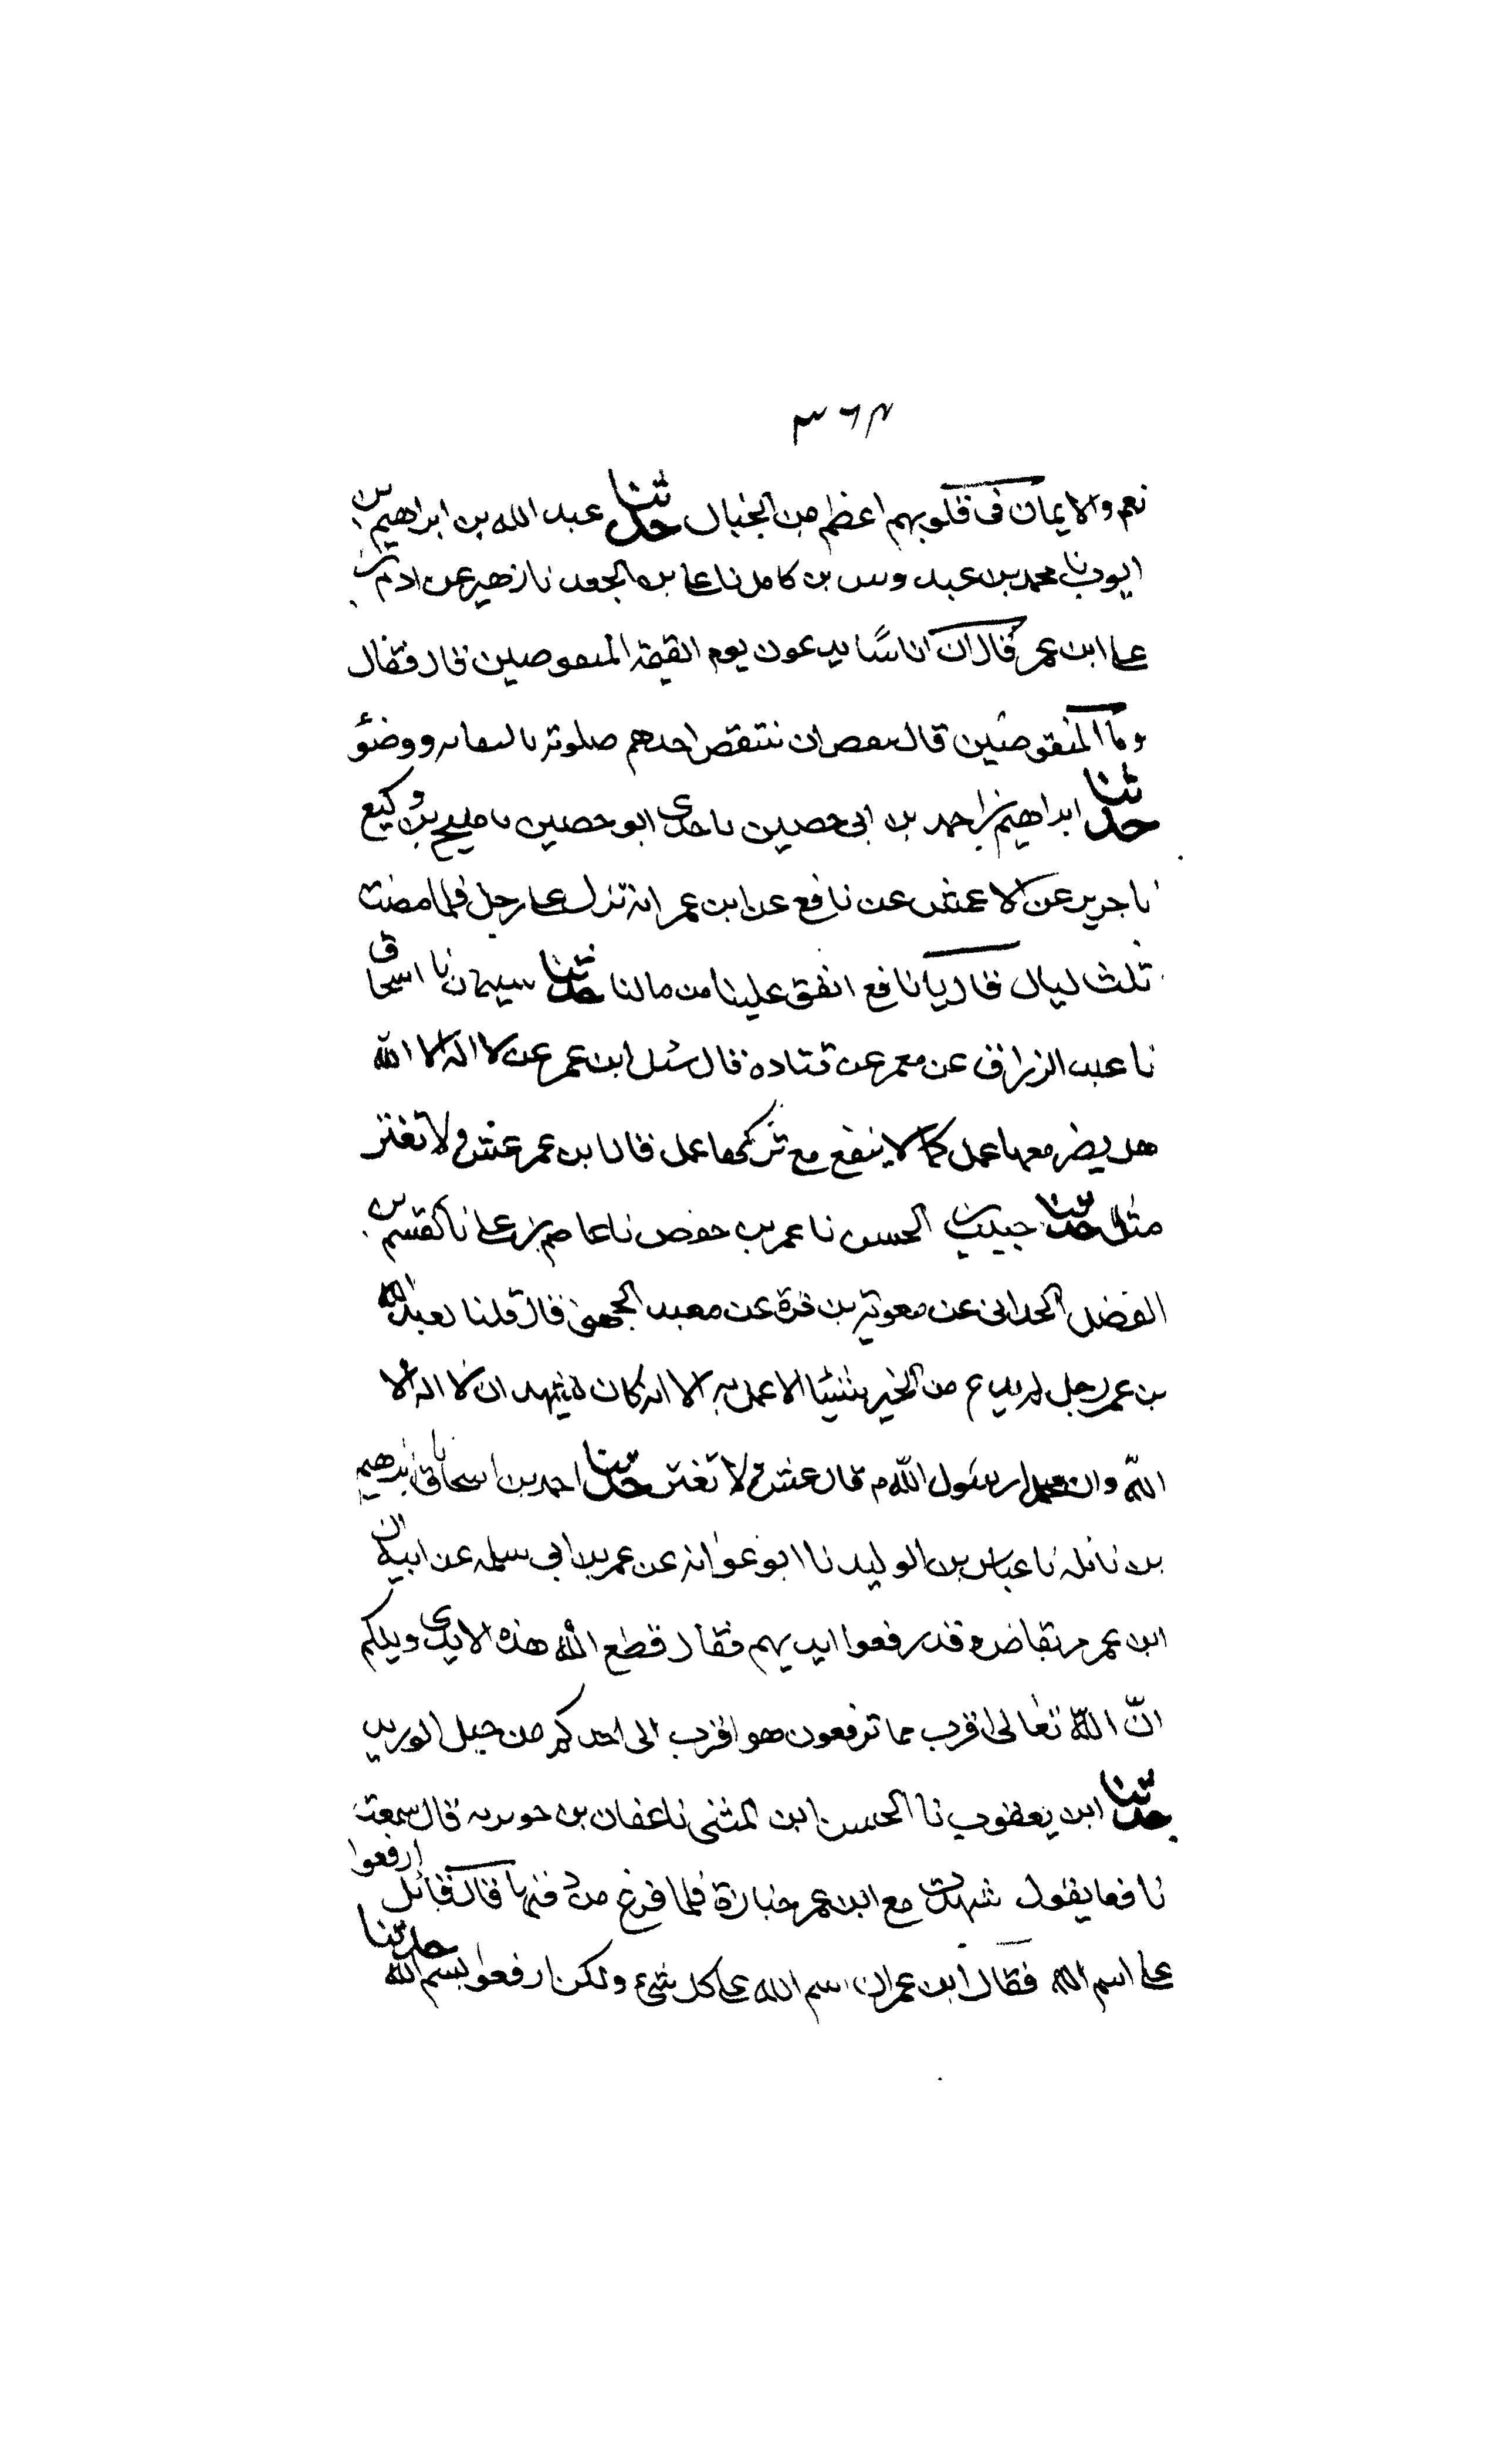 ٣٦٢
نعم والايمان في قلوبهم اعظم من الجبال حدثنا عبد الله بن ابراهيم بن
ايوب نا محمد بن عبدوس بن كامل نا علي بن الجعد نا زهير عن ادم بن
علي ابن عمر قال ان اناسًا يدعون يوم القيمة المنقوصين قال فقال
وما المنقوصين قال ينتقص احدهم صلوته بالتفاته ووضؤ
حدثنا ابراهيم بن احمد بن ابي حصين نا جدي ابو حصين نا مليح بن وكيع
نا جرير عن الاعمش عن نافع عن ابن عمر انه نزل على رجل فلما مضت
ثلث ليال قال يا نافع انفق علينا من مالنا حدثنا سليمان نا اسحاق
نا عبد الرزاق عن معمر عن قتاده قال سئل ابن عمر عن لا اله الا الله
هل يضر معها عمل كما لا ينفع مع تركها عمل قال ابن عمر عش ولا تغتر
مثله حدثنا حبيب بن الحسن نا عمر بن حفص نا عاصم بن علي نا القسم بن
الفضل الحداني عن معوية بن قرة عن معبد الجهني قال قلنا لعبد الله
بن عمر رجل لم يدع من الخير شيئا الا عمل به الا انه كان يشهد ان لا اله الا
الله وان رسول الله م قال عش ولا تغتر حدثنا احمد بن اسحاق نا ابرهيم
بن نائله نا عباس بن الوليد نا ابو عوانه عن عمر بن ابي سلمه عن ابيه ان
ابن عمر مر بقاض وقد رفعوا ايديهم فقال قطع الله هذه الايدي ويلكم
انّ الله تعالى اقرب مما ترفعون هو اقرب الى احدكم من حبل الوريد
حدثنا ابن يعقوب نا الحسن ابن المثنى نا عفان بن جويريه قال سمعت
نافعا يقول شهدت مع ابن عمر جنازة فلما فرغ من دفنها قال قائل ارفعوا
على اسم الله فقال ابن عمر ان اسم الله على كل شئ ولكن ارفعوا بسم الله حدثنا